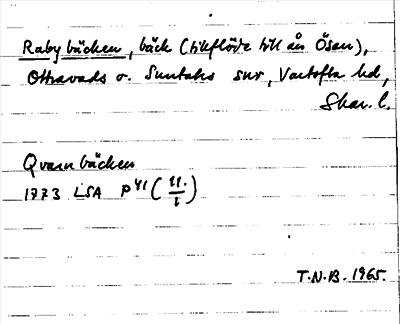 Rabybäcken, bäck (tillflöde till ån Ösan),
Ottravads o. Suntaks snr, Vartofta hd,
Skar. l.
Qvarnbäcken
1773 LSA P41 (11:/1)
T.N.B. 1965.